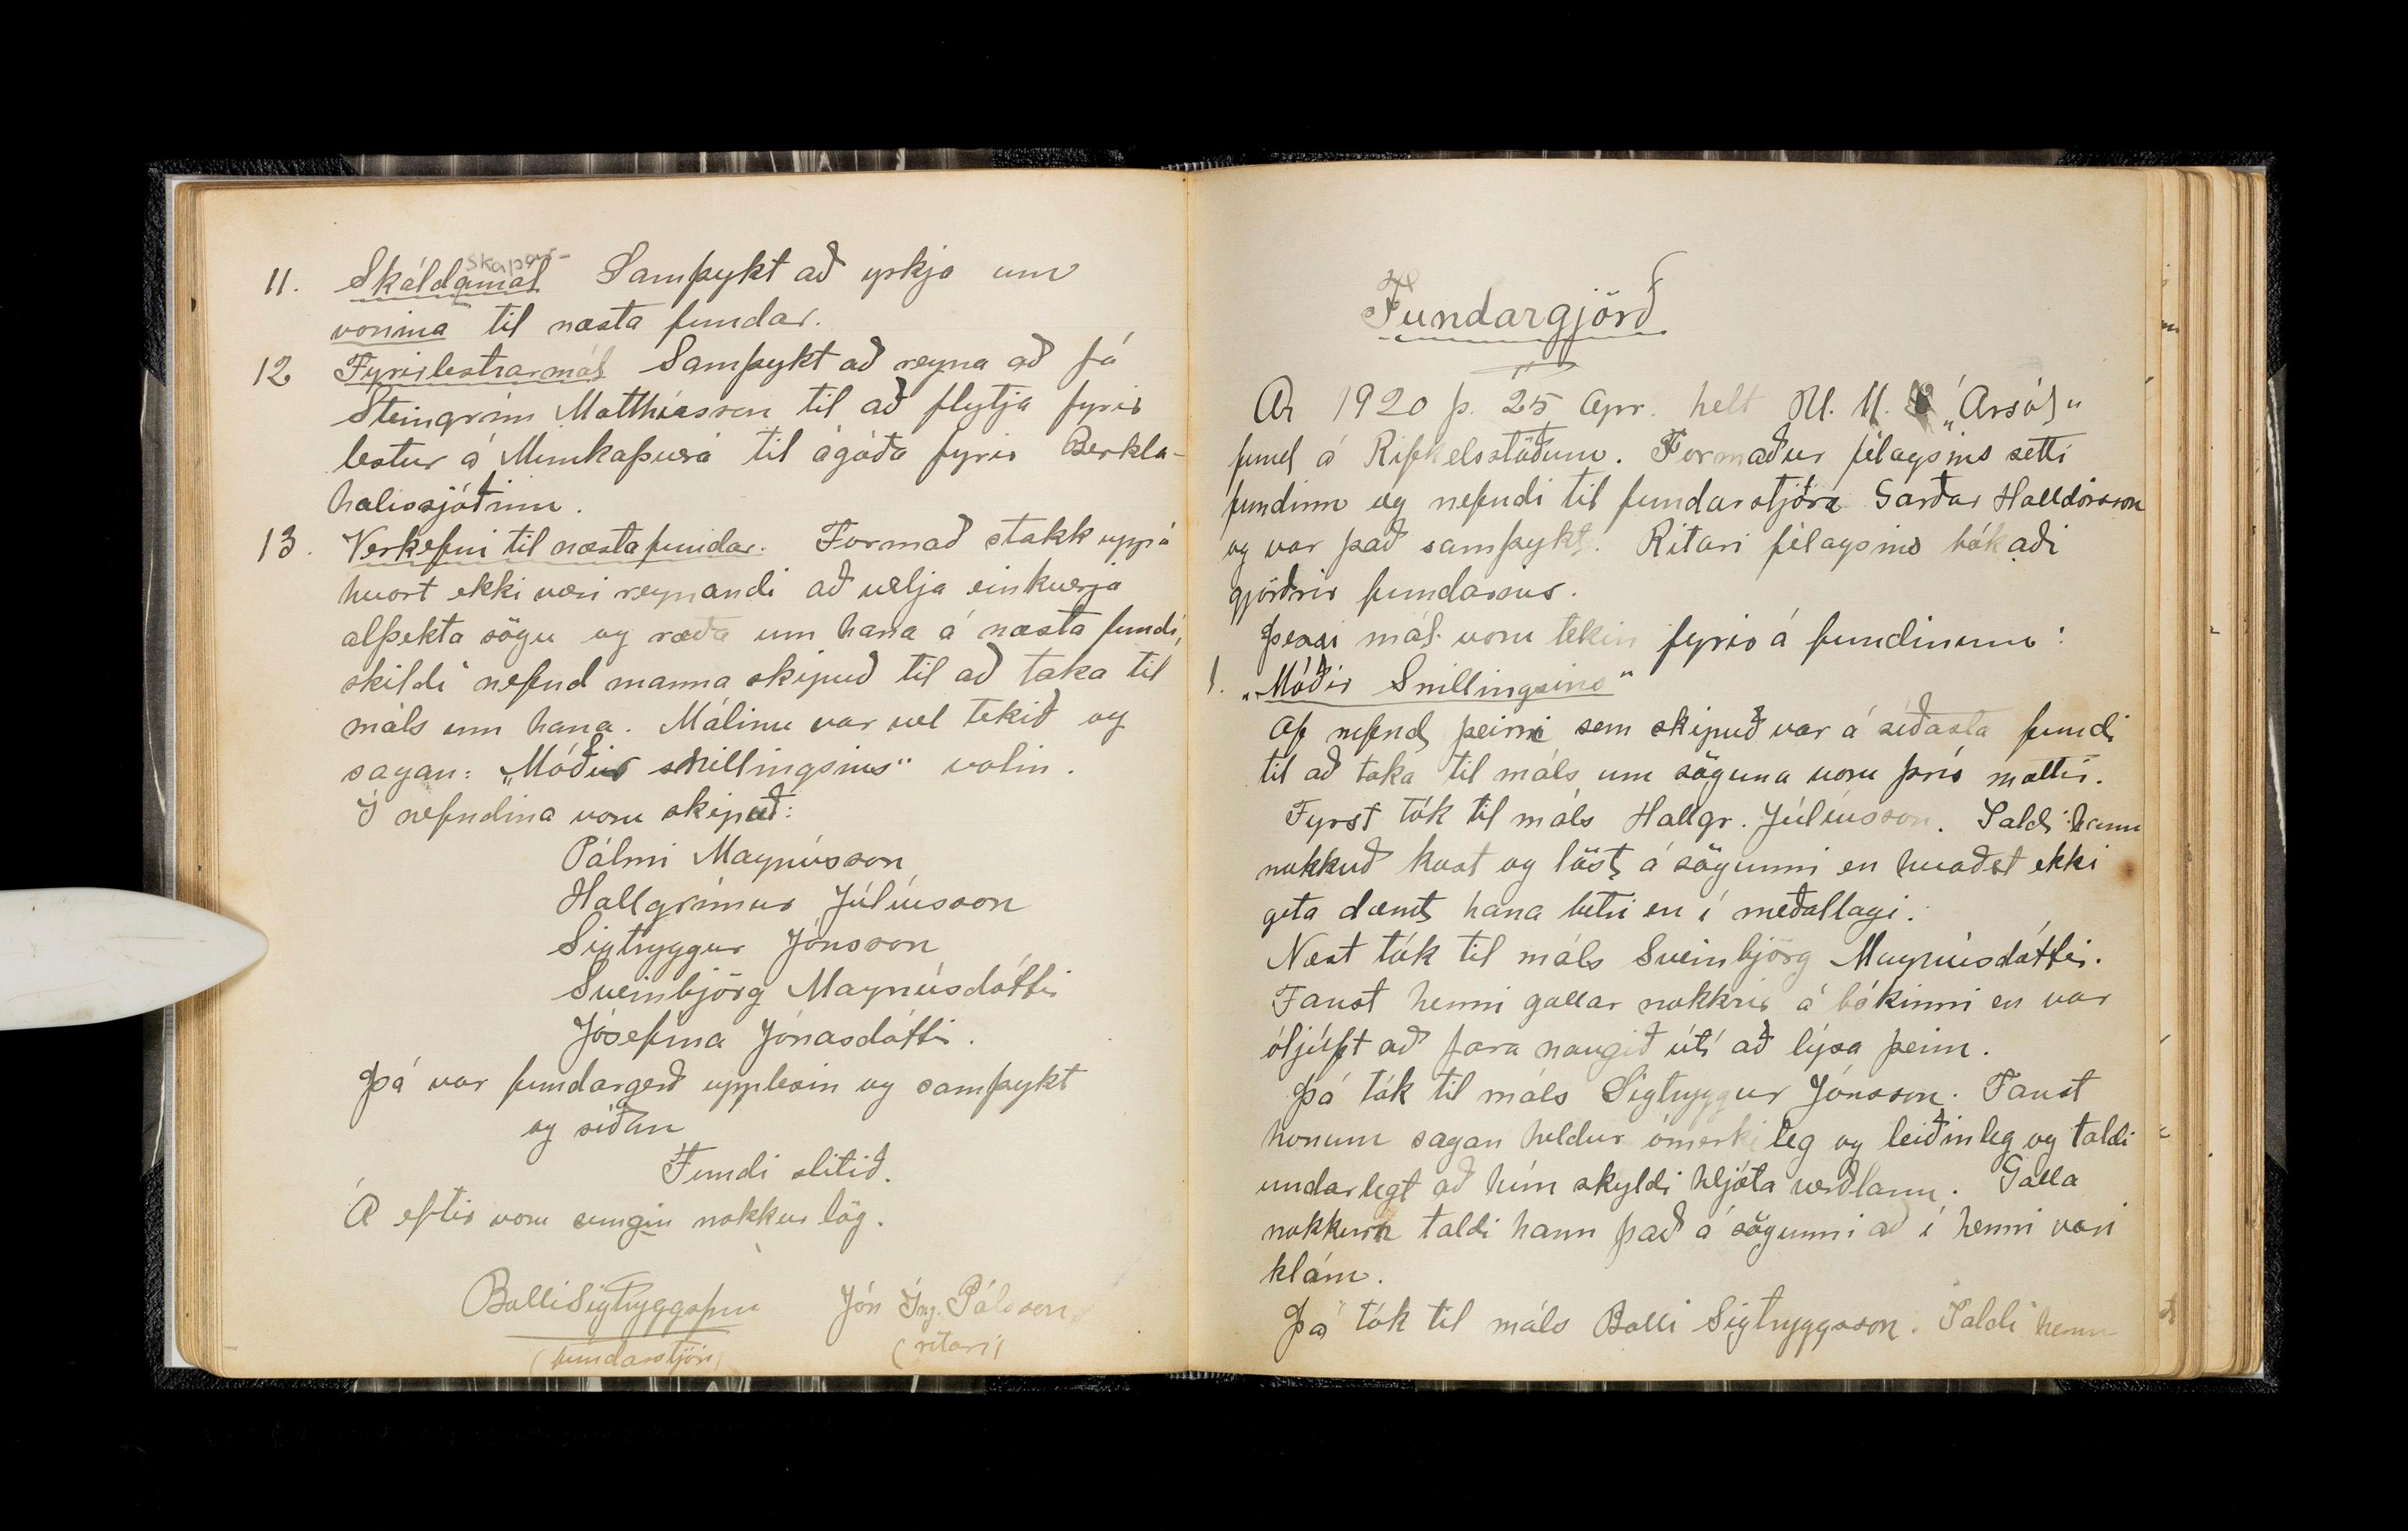 11. Skáldaskaparmál Samþykt að yrkja um
vorima til næsta fundar.
12 Fyrirlestrarmál Samþykt að reyna að fá
Steingrím Matthíasson til að flytja fyrir
lestur á Munkaþverá til ágóða fyrir Berkla-
hælissjóðinn.
13. Verkefni til næsta fundar. Formað stakk uppá
hvort ekki væri reynandi að velja einhverja
alþekta sögu og ræða um hana á næsta fundi,
skildi nefnd manna skipuð til að taka til
máls um hana. Málinu var vel tekið og
sagan: „Móðir snillingsins" valin.
Í nefndina voru skipuð:
Pálmi Magnússon
Hallgrímur Júlíusson
Sigtryggur Jónsson
Sveinbjörg Magnúsdóttir
Jósefína Jónasdóttir.
Þá var fundargerð upplesin og samþykt
og síðan
Fundi slitið.
Á eftir voru sungin nokkur lög.
Balli Sigtryggsson Jón Ing. Pálsson
(fundarstjóri) (ritari)
Fundargjörð
Ár 1920 þ. 25 Apr. helt U. M. „Ársól"
fund á Rifkelsstöðum. Formaður félagsins setti
fundinn og nefndi til fundarstjóra Garðar Halldórsson
og var það samþykt. Ritari félagsins bókaði
gjörðir fundarins.
Þessi mál voru tekin fyrir á fundinum:
1. „Móðir Snillingsins"
Af nefnd þeirri sem skipuð var á síðasta fundi
til að taka til máls um söguna voru þrír mættir.
Fyrst tók til máls Hallgr. Júlíusson. Taldi hann
nokkuð kost og löst á sögunni en kvaðst ekki
geta dæmt hana betri en í meðallagi.
Næst tók til máls Sveinbjörg Magnúsdóttir.
Fanst henni gallar nokkrir á bókinni en var
óljúft að fara naugið útí að lýsa þeim.
Þá tók til máls Sigtryggur Jónsson. Fanst
honum sagan heldur ómerkileg og leiðinleg og taldi
undarlegt að hún skyldi hljóta verðlaun. Galla
nokkurn taldi hann það á sögunni að í henni væri
klám.
Þá tók til máls Balli Sigtryggsson. Taldi hann